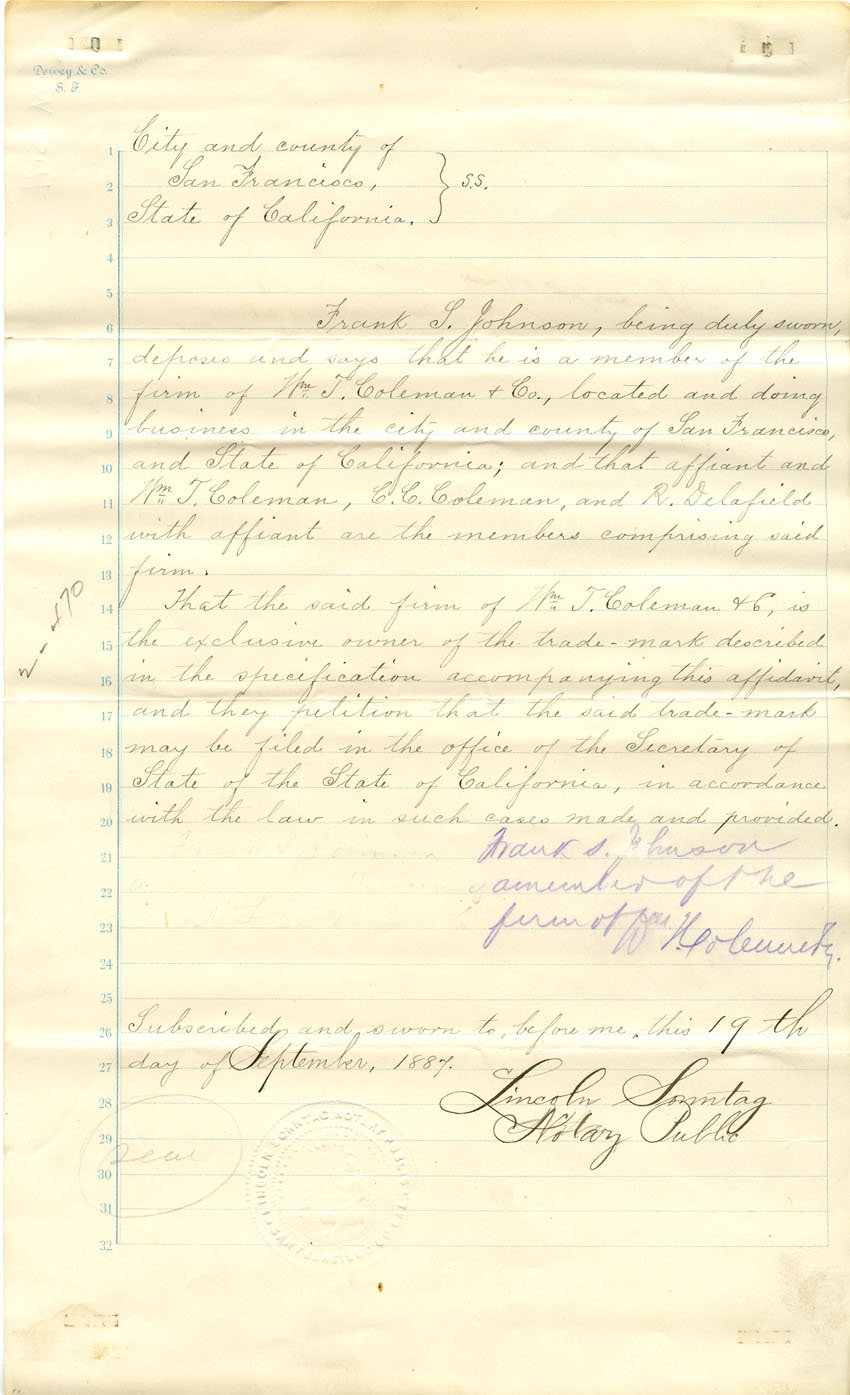 Dewey & Co.
S. F.
1 City and county of
2 San Francisco, } s.s.
3 State of California.
4
5
6 Frank S. Johnson, being duly sworn,
7 deposes and says that he is a member of the
8 firm of Wm. T. Coleman & Co., located and doing
9 business in the city and county of San Francisco,
10 and State of California; and that affiant and
11 Wm. T. Coleman, C. C. Coleman, and R. Delafield
12 with affiant are the members comprising said
13 firm.
14 That the said firm of Wm. T. Coleman & C, is
15 the exclusive owner of the trade-mark described
16 in the specification accompanying this affidavit,
17 and they petition that the said trade-mark
18 may be filed in the office of the Secretary of
19 State of the State of California, in accordance
20 with the law in such cases made and provided.
21 Frank S. Johnson
22 a member of the
23 firm of Wm T Coleman & Co.
24
25
26 Subscribed and sworn to, before me, this 19th
27 day of September, 1887.
28 Lincoln Sonntag
29 Notary Public
30
31
32
seal
LINCOLN SONNTAG, NOTARY PUBLIC
SAN FRANCISCO CO. CAL.